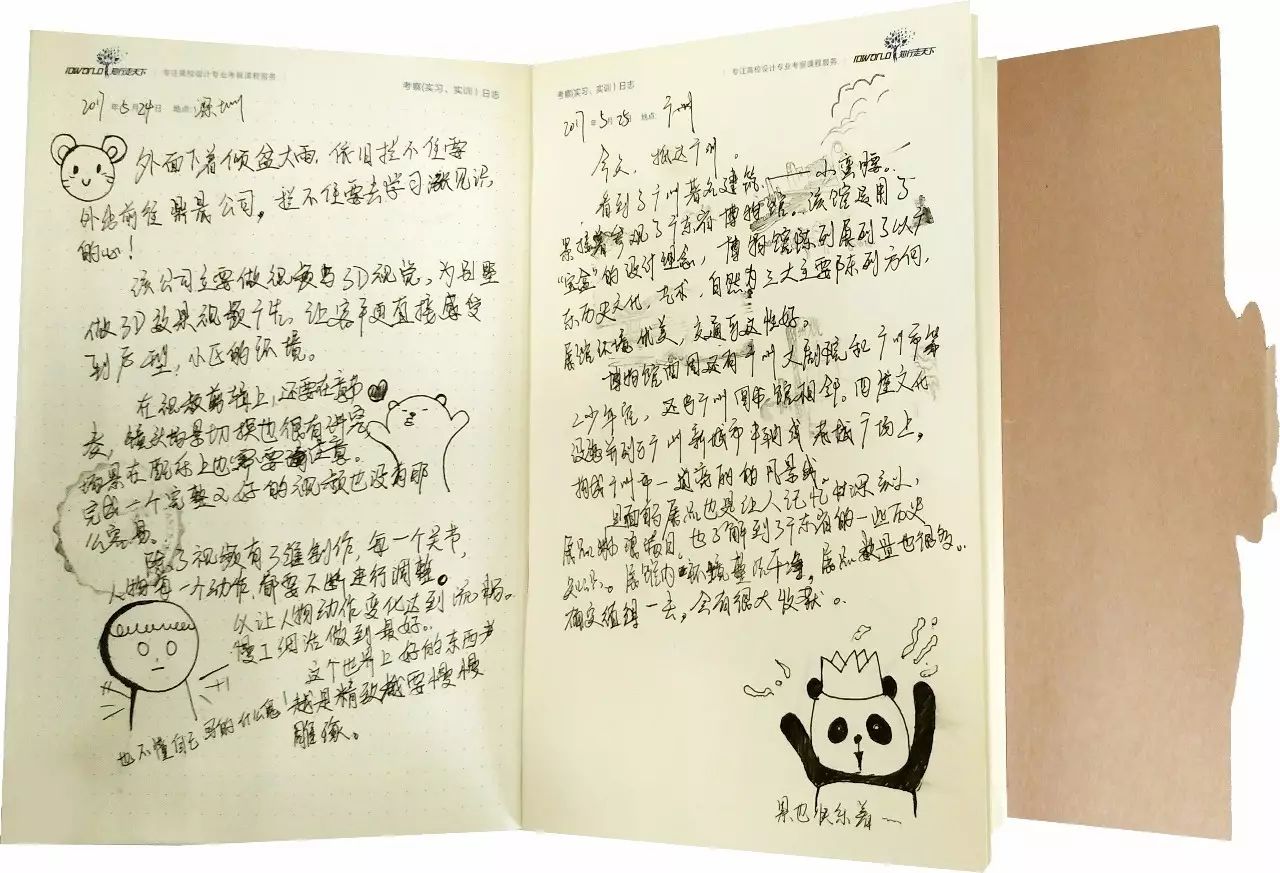 IDWORLD 知行走天下 专注高校设计专业考察课程服务
考察(实习、实训)日志
2017年5月24日 地点:深圳
外面下着倾盆大雨,依旧拦不住要
外出前往鼎晟公司,拦不住要去学习激见识
的心!
该公司主要做视频与3D视觉,为别墅
做3D效果视频广告。让客户更直接感受
到户型,小区的环境。
在视频剪辑上,还要在音节
表,镜头场景切换也很有讲究,
在配乐上也需要注意。
完成一个完整又好的视频也没有那
么容易。
除了视频有了维制作,每一个关节,
人物每一个动作,都要不断进行调整。
以让人物动作变化达到流畅。
慢工细活做到最好。
这个世界上好的东西都
越是精致越要慢慢
雕琢。
也不懂自己写的什么鬼!
专注高校设计专业考察课程服务 IDWORLD 知行走天下
考察(实习、实训)日志
2017年5月25日 地点:广州
今天,抵达广州。
看到了广州著名建筑——小蛮腰。
接着参观了广东省博物馆。该馆是用了
“宝盒”的设计理念,博物馆陈列展列了以广
东历史文化、艺术,自然为三大主要陈列方向,
展馆环境优美,交通到达性好。
博物馆周围还有广州大剧院和广州市第
二少年宫,还与广州图书馆相邻。四座文化
设施并列于广州新城市中轴线 广场上,
构成广州市一道亮丽的风景线。
里面的展品也是让人记忆甚深刻,
展品琳琅满目,也了解到了广东省的一些历史
文化。展馆内环境整洁干净,展品数量也很多。
确实值得一去,会有很大收获。
累也快乐着~